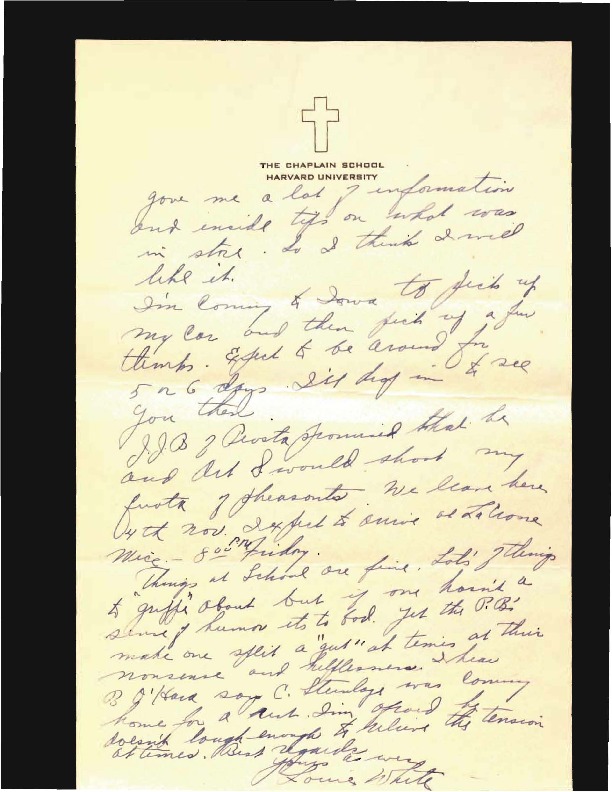 THE CHAPLAIN SCHOOL
HARVARD UNIVERSITY
gave me a lot of information
and inside tips on what was
in store. So I think I will
like it.
I'm coming to Iowa to pick up
my car and then pick up a few
things. Expect to be around for
5 or 6 days. I'll drop in to see
you then.
J.J.B of Peosta promised that he
and Art I would shoot my
quota of pheasants. We leave here
4th Nov. I expect to arrive at LaCrosse
Wisc. - 8:00 PM Friday.
Things at School are fine. Lots of things
to "gripe" about but if one hasn't a
sense of humor its to bad. Yet the P.B's
make one split a "gut" at times at their
nonsense and helplessness. I hear
B O'Hara says C. Steinlage was coming
home for a rest. I'm afraid he
doesn't laugh enough to relieve the tension
at times. Best regards
Yours as ever
Louie White